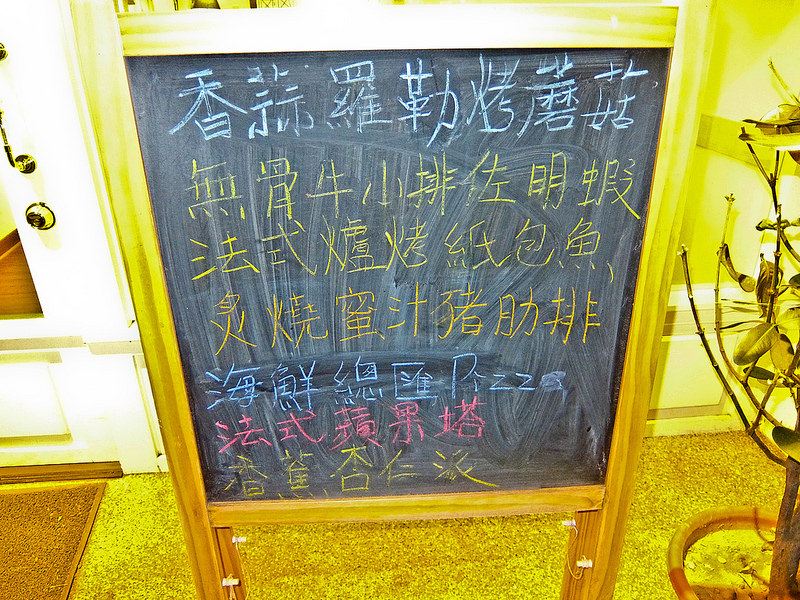 香蒜羅勒烤蘑菇
無骨牛小排佐明蝦
法式爐烤紙包魚
炙燒蜜汁豬肋排
海鮮總匯Pizza
法式蘋果塔
香蕉杏仁派